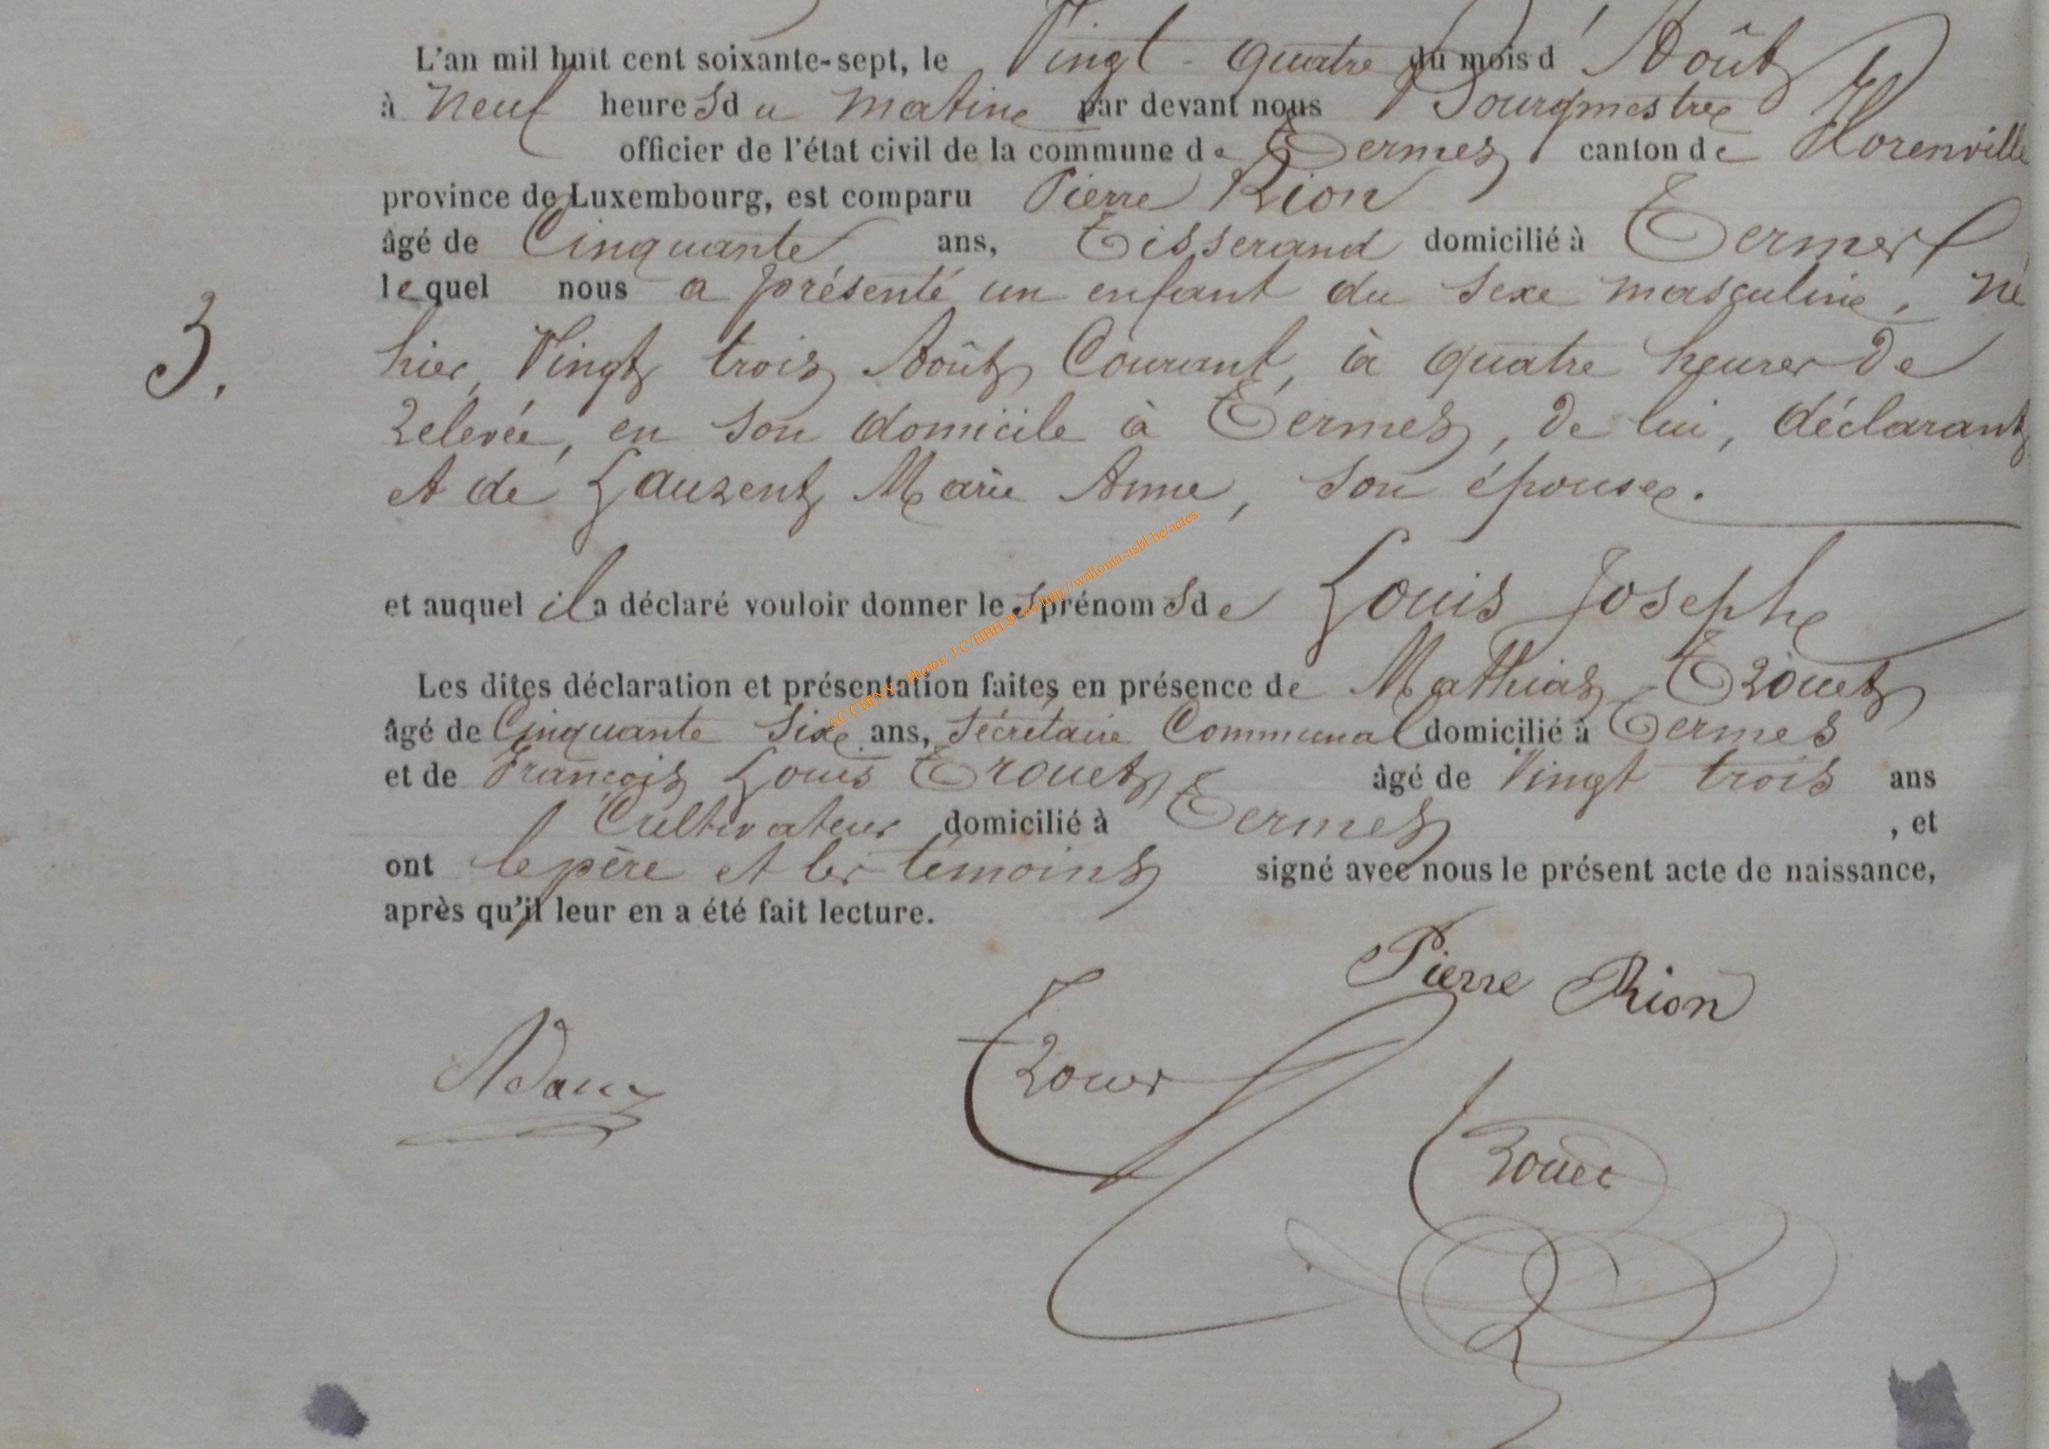 L'an mil huit cent soixante-sept, le Vingt-quatre du mois d'Août
à neuf heures du matin par devant nous Bourgmestre
officier de l'état civil de la commune de Termes canton de Florenville
province de Luxembourg, est comparu Pierre Rion
âgé de Cinquante ans, Tisserand domicilié à Termes
lequel nous a présenté un enfant du sexe masculin, né
3. hier, Vingt trois Août Courant, à quatre heures de
relevée, en son domicile à Termes, de lui, déclarant
et de Laurent Marie Anne, son épouse.
et auquel il a déclaré vouloir donner les prénoms de Louis Joseph
Les dites déclaration et présentation faites en présence de Mathias Trouet
âgé de Cinquante six ans, Sécrétaire Communal domicilié à Termes
et de François Louis Trouet âgé de Vingt trois ans
Cultivateur domicilié à Termes, et
ont le père et les témoins signé avec nous le présent acte de naissance,
après qu'il leur en a été fait lecture.
Pierre Rion
Adam Trouet
Trouet